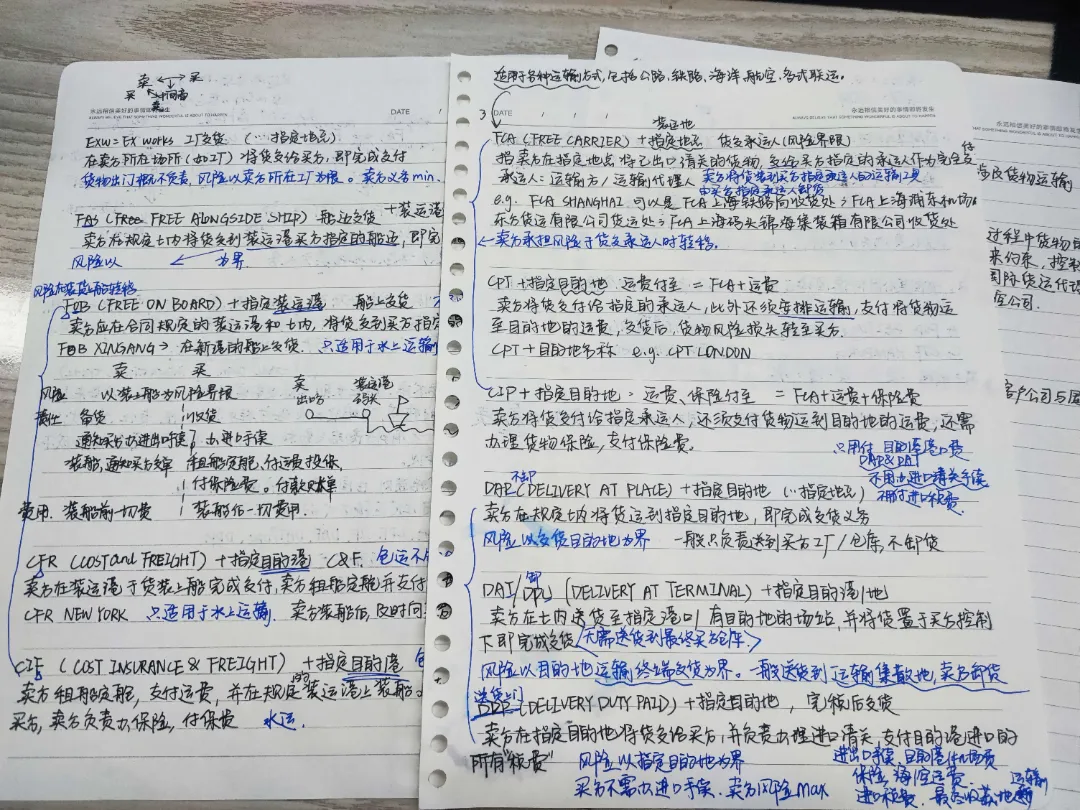 卖 ⟷ 买
买 中间商
卖
永远相信美好的事情即将发生
ALWAYS BELIEVE THAT SOMETHING WONDERFUL IS ABOUT TO HAPPEN
DATE
EXW: EX works 工厂交货 (…指定地点)
在卖方所在场所(如工厂)将货交给买方,即完成交付
货物出门概不负责,风险以卖方所在工厂为限。卖方义务min.
FAS (Free FREE ALONGSIDE SHIP) 船边交货 + 装运港
卖方在规定
内将货交到装运港买方指定的船边,即完
风险以 为界.
风险在装货上船转移
FOB (FREE ON BOARD) + 指定装运港 船上交货
卖方应在合同规定的装运港和
内,将货交到买方指定
FOB XINGANG → 在新港的船上交货. 只适用于水上运输
卖 买
风险 以装上船为风险界限
责任 备货 收货
通知买方办进出口手续 办进口手续
装船,通知买方 租船定舱、付运费投保,
付保险费。付款
费用. 装船前一切费 装船后一切费用.
卖 装运港
出口 码头
CFR (COST and FREIGHT) + 指定目的港 C&F.
卖方在装运港于货装上船完成交付,卖方租船定舱并支付
CFR NEW YORK 只适用于水上运输. 卖方装船后,及时向
CIF (COST INSURANCE & FREIGHT) + 指定目的港
卖方租船定舱,支付运费,并在规定 装运港上装船
买方,卖方负责办保险,付保费 水运.
适用于各种运输方式,包括公路,铁路,海洋,航空,多式联运。
3
DATE
永远相信美好的事情即将发生
ALWAYS BELIEVE THAT SOMETHING WONDERFUL IS ABOUT TO HAPPEN
装运地
FCA (FREE CARRIER) + 指定地点 货交承运人(风险界限)
指卖方在指定地点将已出口清关的货物,交给买方指定的承运人作为完全交付
承运人:运输方/运输代理人 卖方将货装到买方指定承运人的运输工具
由买方指定承运人卸货
e.g. FCA SHANGHAI 可以是 FCA上海铁路局收货处;FCA上海浦东机场
东方货运有限公司货运处;FCA上海码头锦海集装箱有限公司收货处
← 卖方承担风险于货交承运人时转移。
CPT + 指定目的地 运费付至 = FCA + 运费
卖方将货交付给指定的承运人,此外还须安排运输,支付将货物运
至目的地的运费,交货后,货物风险损失转至买方.
CPT + 目的地名称 e.g. CPT LONDON
CIP + 指定目的地 · 运费、保险付至 = FCA + 运费 + 保险费
卖方将货交付给指定承运人,还须支付货物运到目的地的运费,还需
办理货物保险,支付保险费。
只用付目的港港口费
DAP & DAT
不用办进口清关手续
不用付进口税费.
不卸
DAP (DELIVERY AT PLACE) + 指定目的地 (…指定地点)
卖方在规定
内将货运到指定目的地,即完成交货义务
风险以交货目的地为界 一般只负责送到买方工厂/仓库,不卸货
卸
DAT/DPU (DELIVERY AT TERMINAL) + 指定目的港/地
卖方在
内送货至指定港口/有目的地的场站,并将货置于买方控制
下即完成交货(无需送货到最终买方仓库)
风险以目的地运输终端交货为界。一般送货到运输集散地,卖方卸货
送货上门
DDP (DELIVERY DUTY PAID) + 指定目的地, 完税后交货
卖方在指定目的地将货交给买方,并负责办理进口清关,支付目的港进口的
所有"税费" 风险以指定目的地为界
买方不需办进口手续. 卖方风险max
进出口手续,目的港
保险,海空运费. 运输
进口税费.
货物运输
过程中货物
来约束,控制
国际货运代理
空公司.
客户公司与